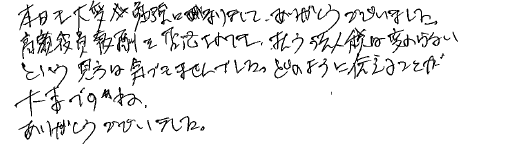 本日も大変勉強になりました。ありがとうございました。
高額役員報酬を否認されても、払う法人税は変わらない
という見方は気づきませんでした。どのように伝えることが
大事ですね。
ありがとうございました。